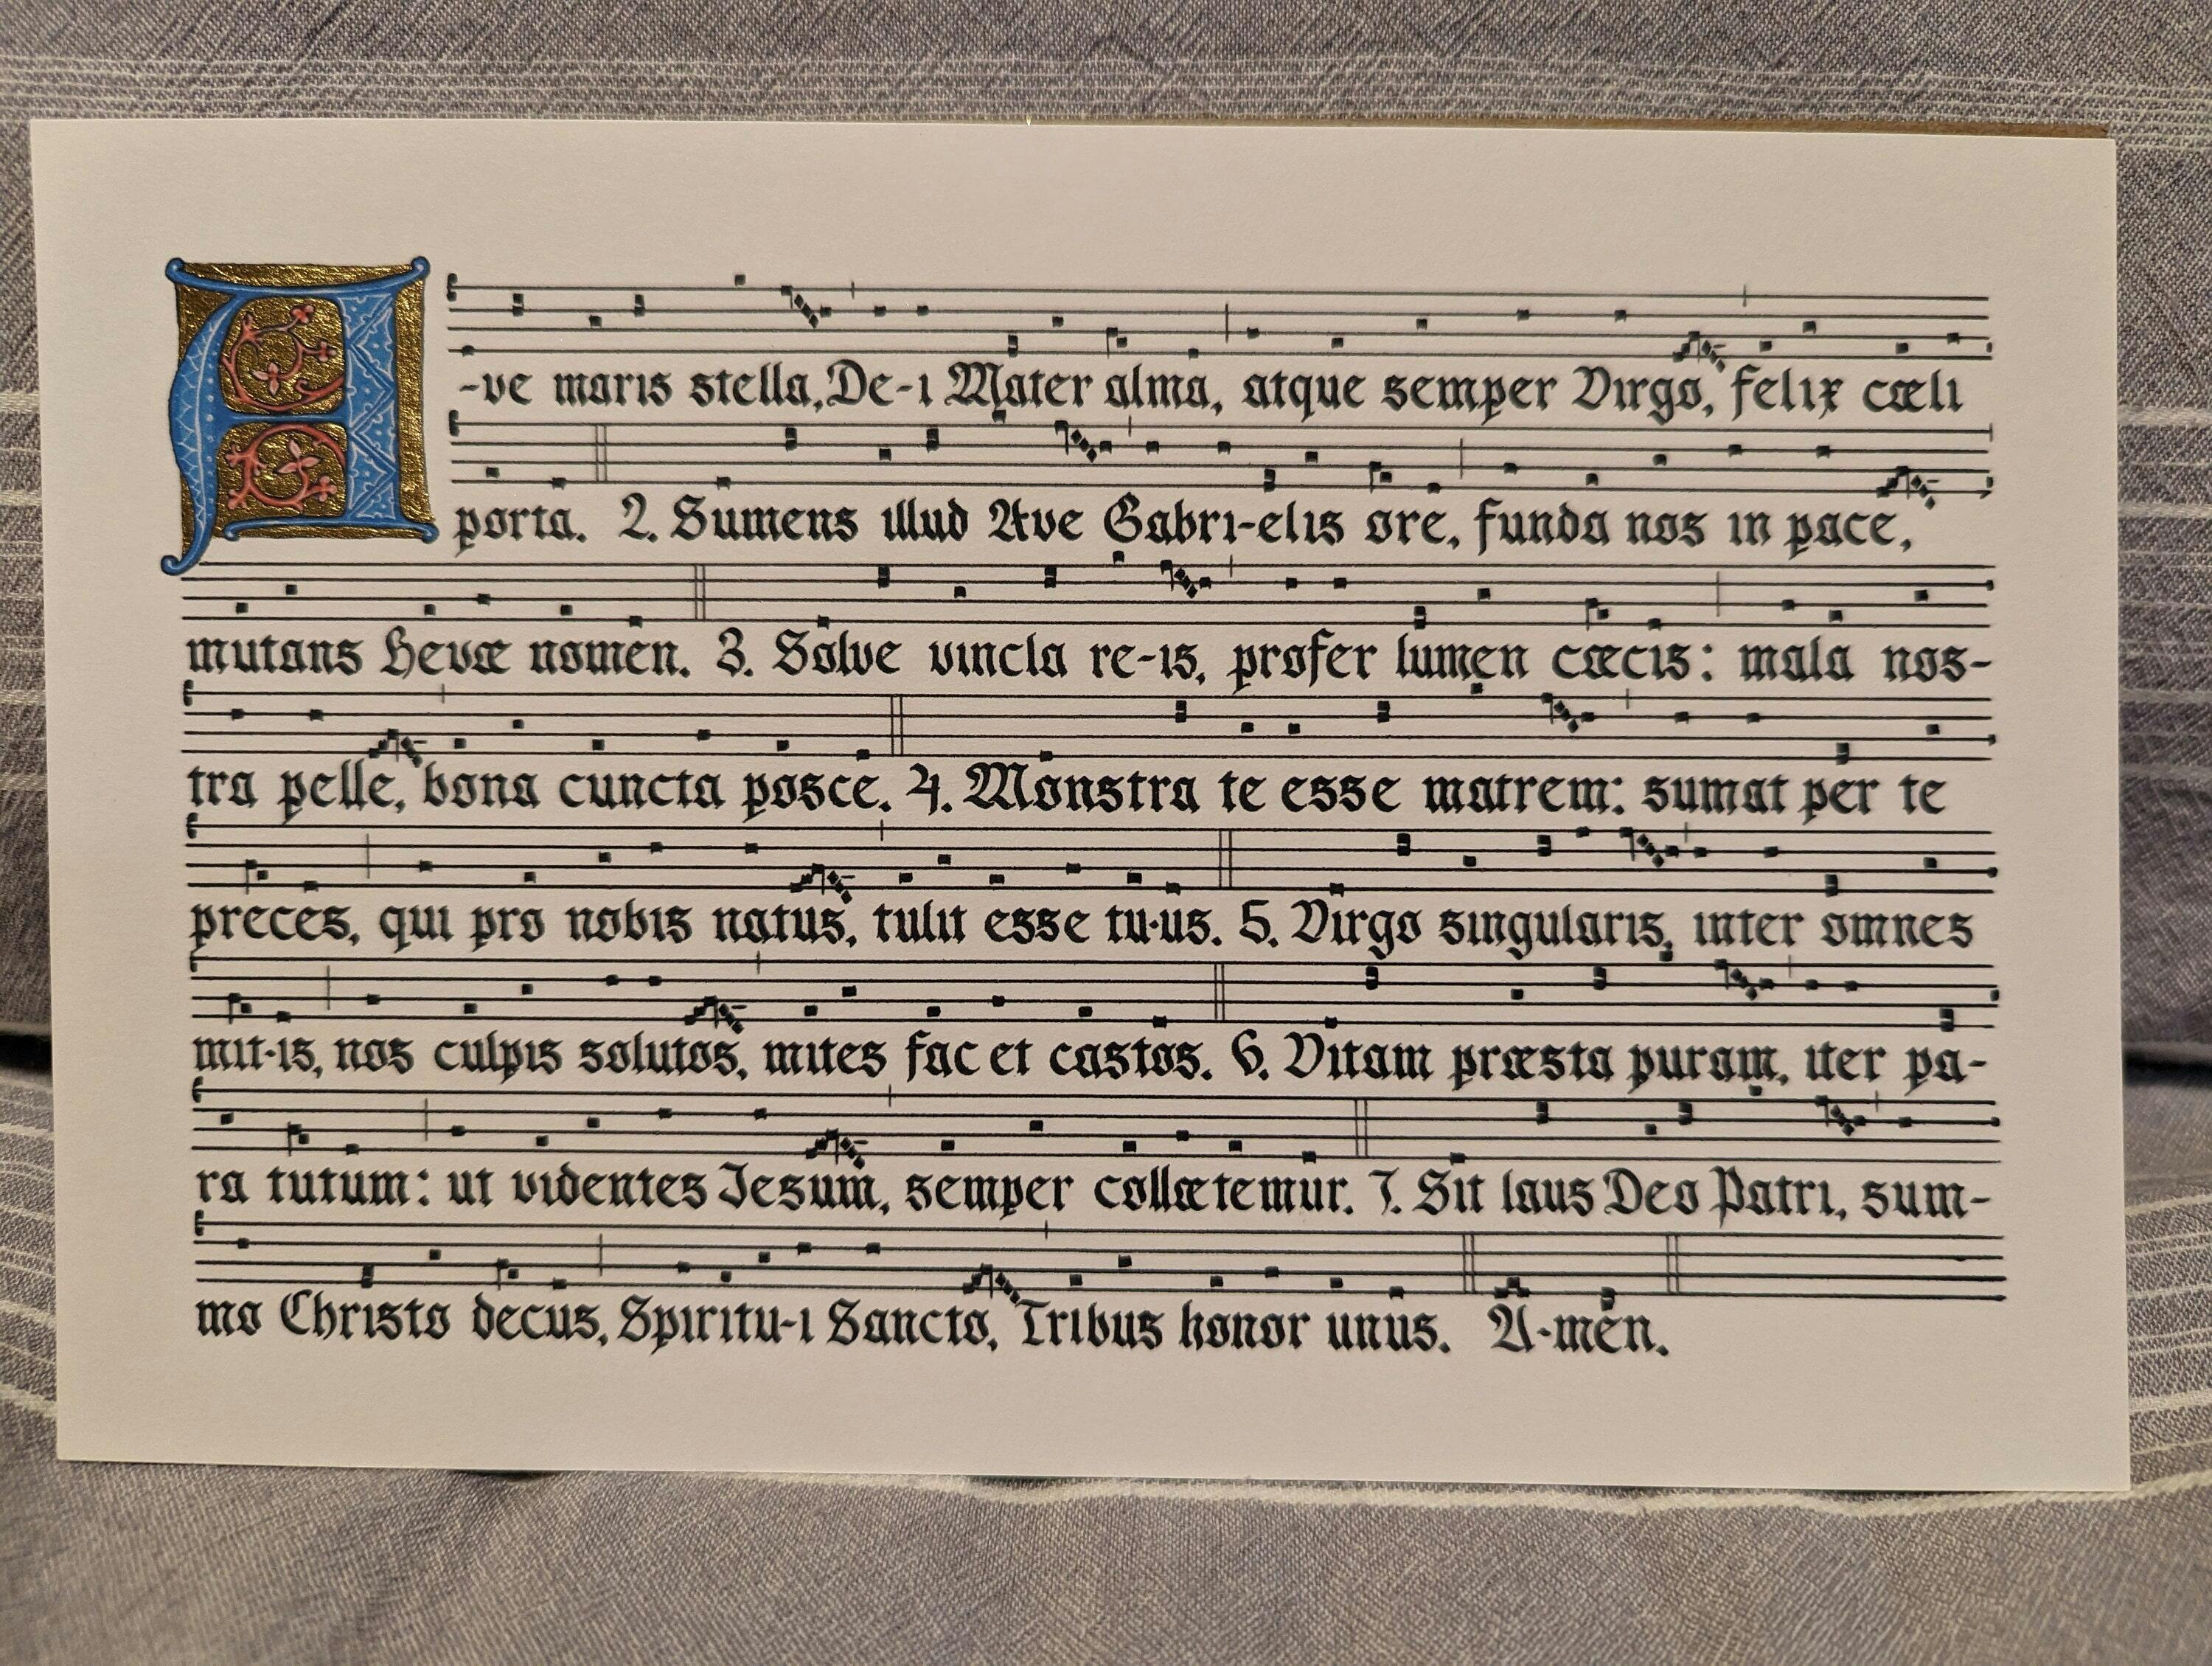 A-ve maris stella, De-i Mater alma, atque semper Virgo, felix cœli
porta. 2. Sumens illud Ave Gabri-elis ore, funda nos in pace,
mutans Hevæ nomen. 3. Solve vincla re-is, profer lumen cæcis: mala nos-
tra pelle, bona cuncta posce. 4. Monstra te esse matrem: sumat per te
preces, qui pro nobis natus, tulit esse tu-us. 5. Virgo singularis, inter omnes
mit-is, nos culpis solutos, mites fac et castos. 6. Vitam præsta puram, iter pa-
ra tutum: ut videntes Jesum, semper collætemur. 7. Sit laus Deo Patri, sum-
mo Christo decus, Spiritu-i Sancto, Tribus honor unus. A-men.